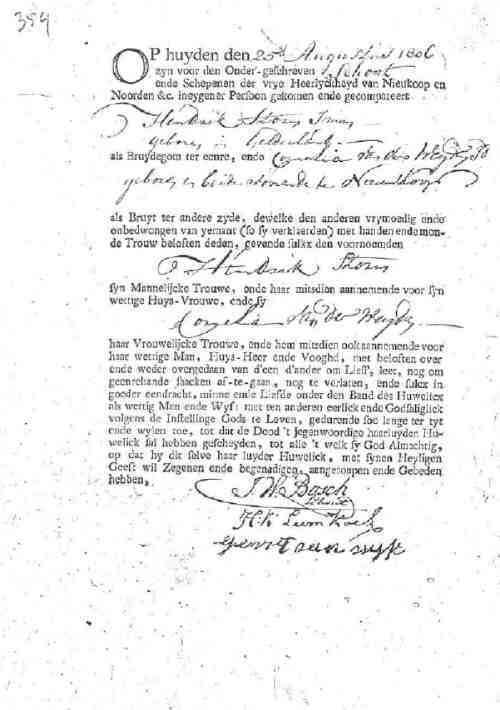 394
OP huyden den 25st Augustus 1806
zyn voor den Onder-geschreven Schout
ende Schepenen der vrye Heerlyckheyd van Nieukoop en
Noorden &c. ineygener Persoon gekomen ende gecompareert
Hendrik Storm
geboren in Gelderland
als Bruydegom ter eenre, ende Cornelia van der
geboren en beide wonende te
als Bruyt ter andere zyde, dewelke den anderen vrymoedig ende
onbedwongen van yemant (so sy verklaerden) met handen ende mon-
de Trouw beloften deden, gevende sulkx den voornoemden
Hendrik Storm
syn Mannelijcke Trouwe, onde haar mitsdien aannemende voor syn
wettige Huys-Vrouwe, ende sy
Cornelia van der
haar Vrouwelijcke Trouwe, ende hem mitsdien ook aannemende voor
haar wettige Man, Huys-Heer ende Vooghd, met beloften over
ende weder overgedaan van d'een d'ander om Lieff, leet, nog om
geenrehande saacken af-te-gaan, nog te verlaten, ende sulcx in
goeder eendracht, minne ende Liefde onder den Band des Huwelicx
als wettig Man ende Wyf: met ten anderen eerlick ende Godsaliglick
volgens de Instellinge Gods te Leven, gedurende soo lange ter tyt
ende wylen toe, tot dat de Dood 't jegenwoordige haerluyden Hu-
welick sal hebben gescheyden, tot alle 't welk sy God Almachtig,
op dat hy dit selve haar luyder Huwelick, met synen Heyligen
Geest wil Zegenen ende begenadigen, aangeroepen ende Gebeden
hebben.
J. W. Bosch
Schout
H. k:
Gerrit van wyk